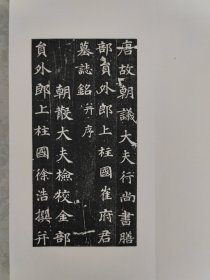 唐故朝議大夫行尚書膳
部員外郎上柱國崔府君
墓誌銘并序
朝散大夫檢校金部
員外郎上柱國徐浩撰并